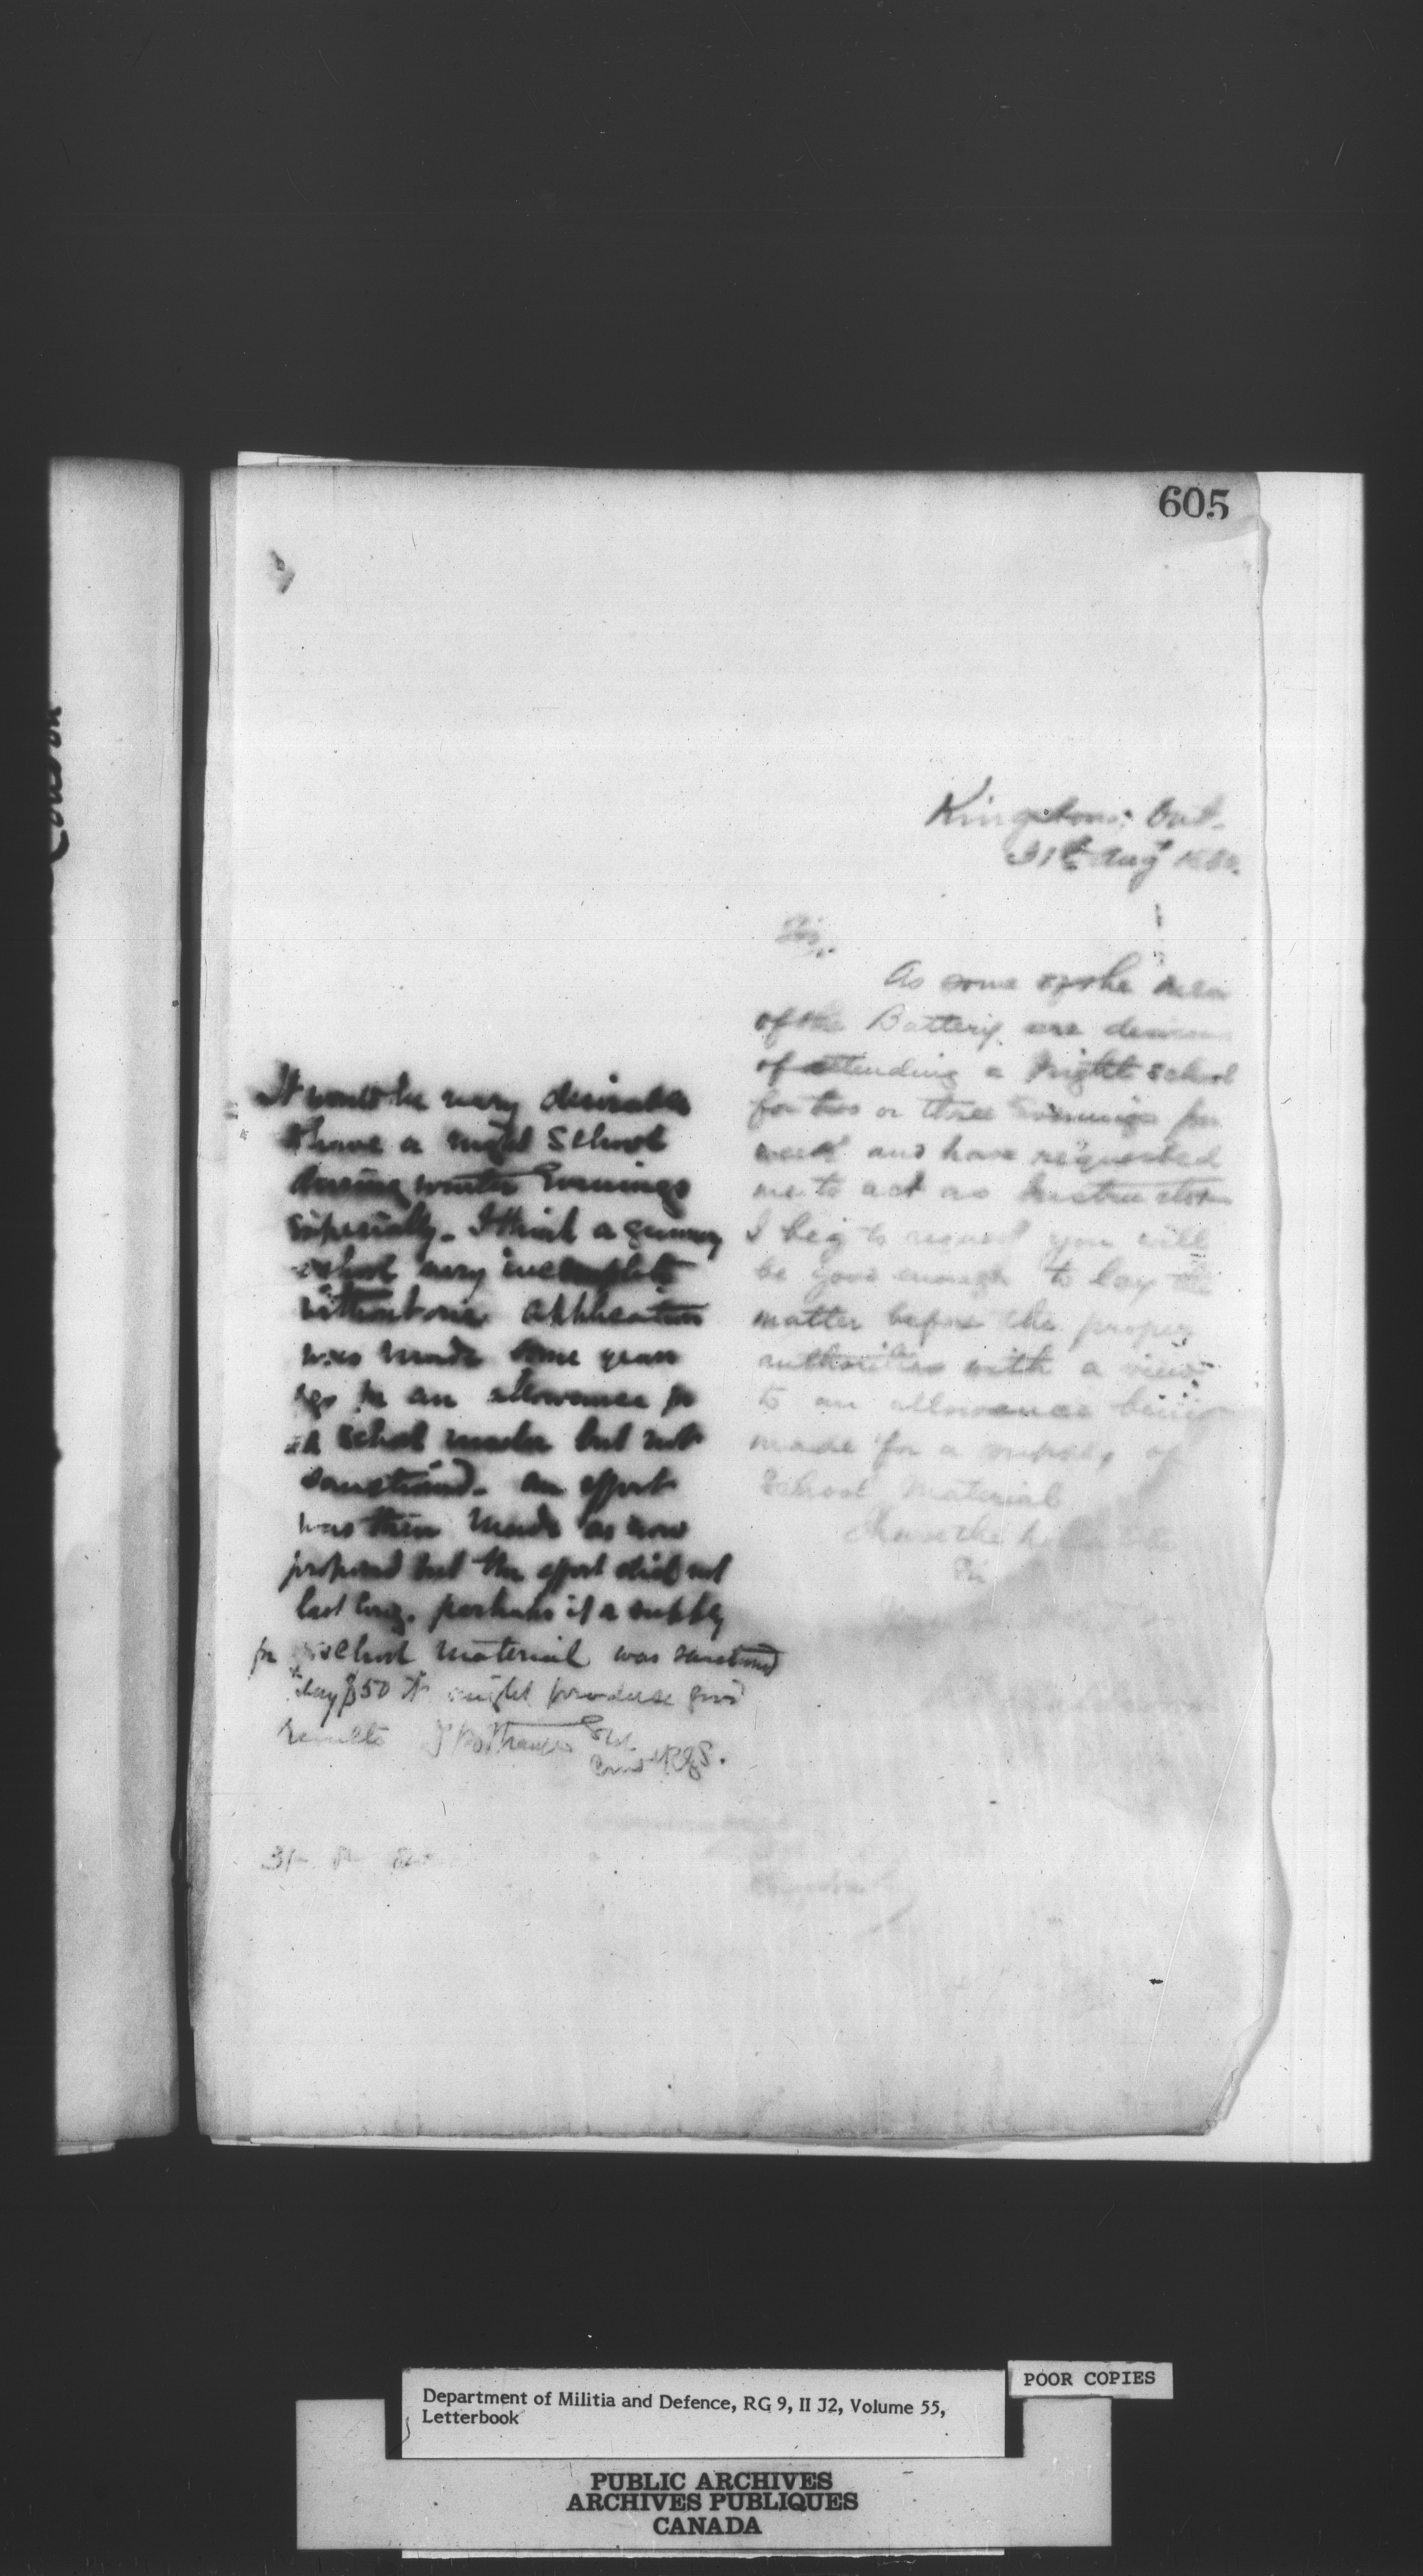 605
Kingston. Ont.
31st Augt
Sir,
As some of the men
of the Battery are desirous
of attending a Night School
for two or three Evenings per
week and have requested
me to act as Instructor
I beg to request you will
be good enough to lay the
matter before the proper
authorities with a view
to an allowance being
made for a supply of
School Material
I have the
Sir
It would be very desirable
to have a night School
during winter Evenings
especially. I think a gunnery
school very incomplete
without one. application
was made some years
ago for an allowance for
a School master but not
sanctioned. an effort
was then made as now
proposed but the effort did not
last long. perhaps if a supply
for school material was sanctioned
say $50 it might produce good
results
31
Department of Militia and Defence, RG 9, II J2, Volume 55,
Letterbook
POOR COPIES
PUBLIC ARCHIVES
ARCHIVES PUBLIQUES
CANADA